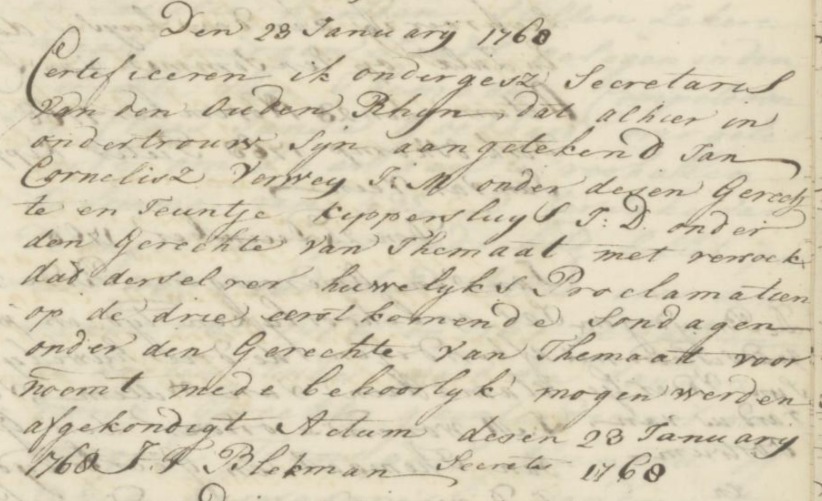 Den 23 January 1768
Certificeren ik ondergesz Secretaris
van den Ouden Rhyn dat alhier in
ondertrouw syn aangetekend Jan
Cornelisz Verwey J: M. onder desen Gerech
te en Teuntje Kippersluys J: D. onder
den Gerechte van Themaat met versoek
dat derselver huwelyks Proclamatien
op de drie eerstkomende Sondagen
onder den Gerechte van Themaat voor
noemt mede behoorlyk mogen werden
afgekondigt Actum desen 23 January
1768 Blekman Secrets 1768